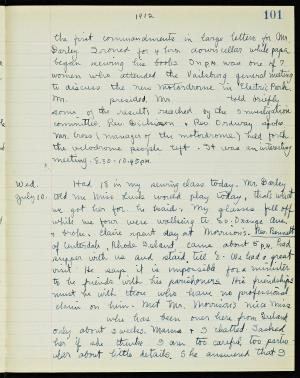 1912
101
the first commandments in large letters for Mr.
Darley. I ironed for 4 hrs. downcellar while papa
began sewing his books. In P.M. was one of 7
women who attended the Vailsburg general meeting
to discuss the new motordrome in Electric Park.
Mr. presided. Mr. told briefly
some of the results reached by the investigation
committee. Rev. Dickinson, Rev. Ordway spoke.
Mr. Cross, (manager of the motordrome,) held forth
the velodrome people left. It was an interesting
meeting. 8.30-10.45 P.M.
Wed.
July 10.
Had 18 in my sewing class today. Mr. Darley
told me Miss Luise would play today, that's what
we got her for, he said. My glasses fell off
while we four were walking to So. Orange Ave.
& broke. Claire spent day at Morrison's. Rev. Bennett
of Centerdale, Rhode Island, came about 5 P.M. Had
supper with us and staid till 8. We had a great
visit. He says it is impossible for a minister
to be friends with his parishioners. His friendships
must be with those who have no professional
claim on him. Met Mr. Morrison's niece Miss
who has been over here from Ireland
only about 3 weeks. Mama & I chatted. I asked
her if she thinks I am too careful, too partic
ular about little details. She answered that I